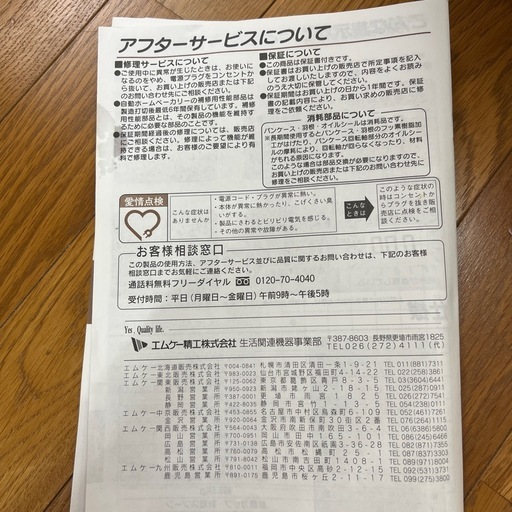 アフターサービスについて
■修理サービスについて
●ご使用中に異常が生じたときは、お使いに
なるのをやめ、電源プラグをコンセントか
ら抜いて、お買い上げの販売店または下記
のお問い合せ先にご相談ください。
●自動ホームベーカリーの補修用性能部品は
製造打切後最低6年間保有しています。補修
用性能部品とは、その製品の機能を維持す
るために必要な部品のことです。
●保証期間経過後の修理については、販売店
にご相談ください。修理よって機能が維
持できる場合は、お客様のご要望により有
料で修理します。
■保証について
●この商品は保証書付きです。
●保証書はお買い上げの販売店で所定事項を記入
してお渡しいたしますので、内容をよくお読み
のうえ大切に保管してください。
●保証期間はお買い上げの日から1年間です。保証
書の記載内容により、お買い求めの販売店に修
理をご依頼ください。
消耗部品について
パンケース・羽根・オイルシールは消耗品です。
※長期間使用するとパンケース・羽根のフッ素樹脂加
工がはがれたり、パンケース回転軸部分のオイルシー
ルの摩耗により、回転軸が回らなくなったり、材料
がもれる原因になります。
このような場合は部品交換が必要になりますので、
お買い上げの販売店または下記のお問い合わせ先に
修理をご相談ください。
愛情点検
こんな症状は
ありませんか
・電源コード・プラグが異常に熱い。
・本体が異常に熱かったり、こげくさい臭
いがする。
・製品にさわるとビリビリ電気を感じる。
・その他の異常や故障がある。
こんな
ときは
このような症状の
時はコンセントか
らプラグを抜き販
売店に点検をご相
談ください。
お客様相談窓口
この製品の使用方法、アフターサービス並びに品質に関するお問い合わせは、下記のお客様
相談窓口までお気軽にご連絡ください。
通話料無料フリーダイヤル 0120-70-4040
受付時間:平日(月曜日~金曜日)午前9時~午後5時
Yes, Quality life.
エムケー精工株式会社 生活関連機器事業部
〒387-8603 長野県更埴市雨宮1825
TEL026(272)4111(代)
エムケー北海道販売株式会社 〒004-0841 札幌市清田区清田一条1-9-21 TEL 011(881)7311
エムケー東北販売株式会社 〒983-0023 仙台市宮城野区福田町4-14-22 TEL 022(258)
エムケー関東販売株式会社 〒125-0062 東京都葛飾区青戸8-3-5 TEL 03(3604)6441
新潟営業所 〒950- 新潟市 2-18-11
長野営業所 更埴市雨宮1825
静岡営業所 静岡市宮竹1-13-5
エムケー中京販売株式会社 〒453-0855 名古屋市中村区烏森町6-109 TEL 052(461)7261
金沢営業所 金沢市南新保町30街区2番
エムケー関西販売株式会社 〒564-0043 大阪府吹田市南吹田3-3-4 TEL 06(6386)5800
岡山営業所 〒700-0951 岡山市田中165-10-1 TEL 086(245)6466
広島営業所 広島市安佐南区祇園3-36-28
高松営業所 高松市松縄町25-1
松山営業所 松山市南吉田町1408-1
エムケー九州販売株式会社 〒810-0011 福岡市中央区高砂2-12-15 TEL 092(531)3731
鹿児島営業所 〒891-0175 鹿児島市桜ヶ丘2-11-17 TEL 099(275)3800